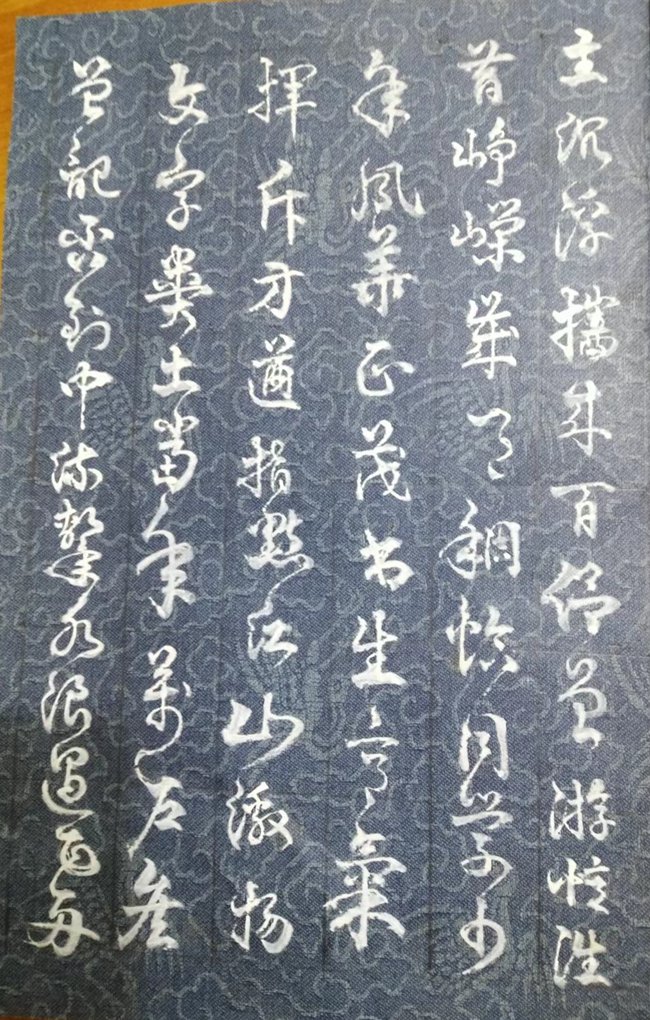 主沉浮攜来百侣曾游憶往
昔峥嶸岁月稠恰同学少
年風華正茂书生意氣
挥斥方遒指點江山激扬
文字糞土當年萬户侯
曾記否到中流擊水浪遏飞舟